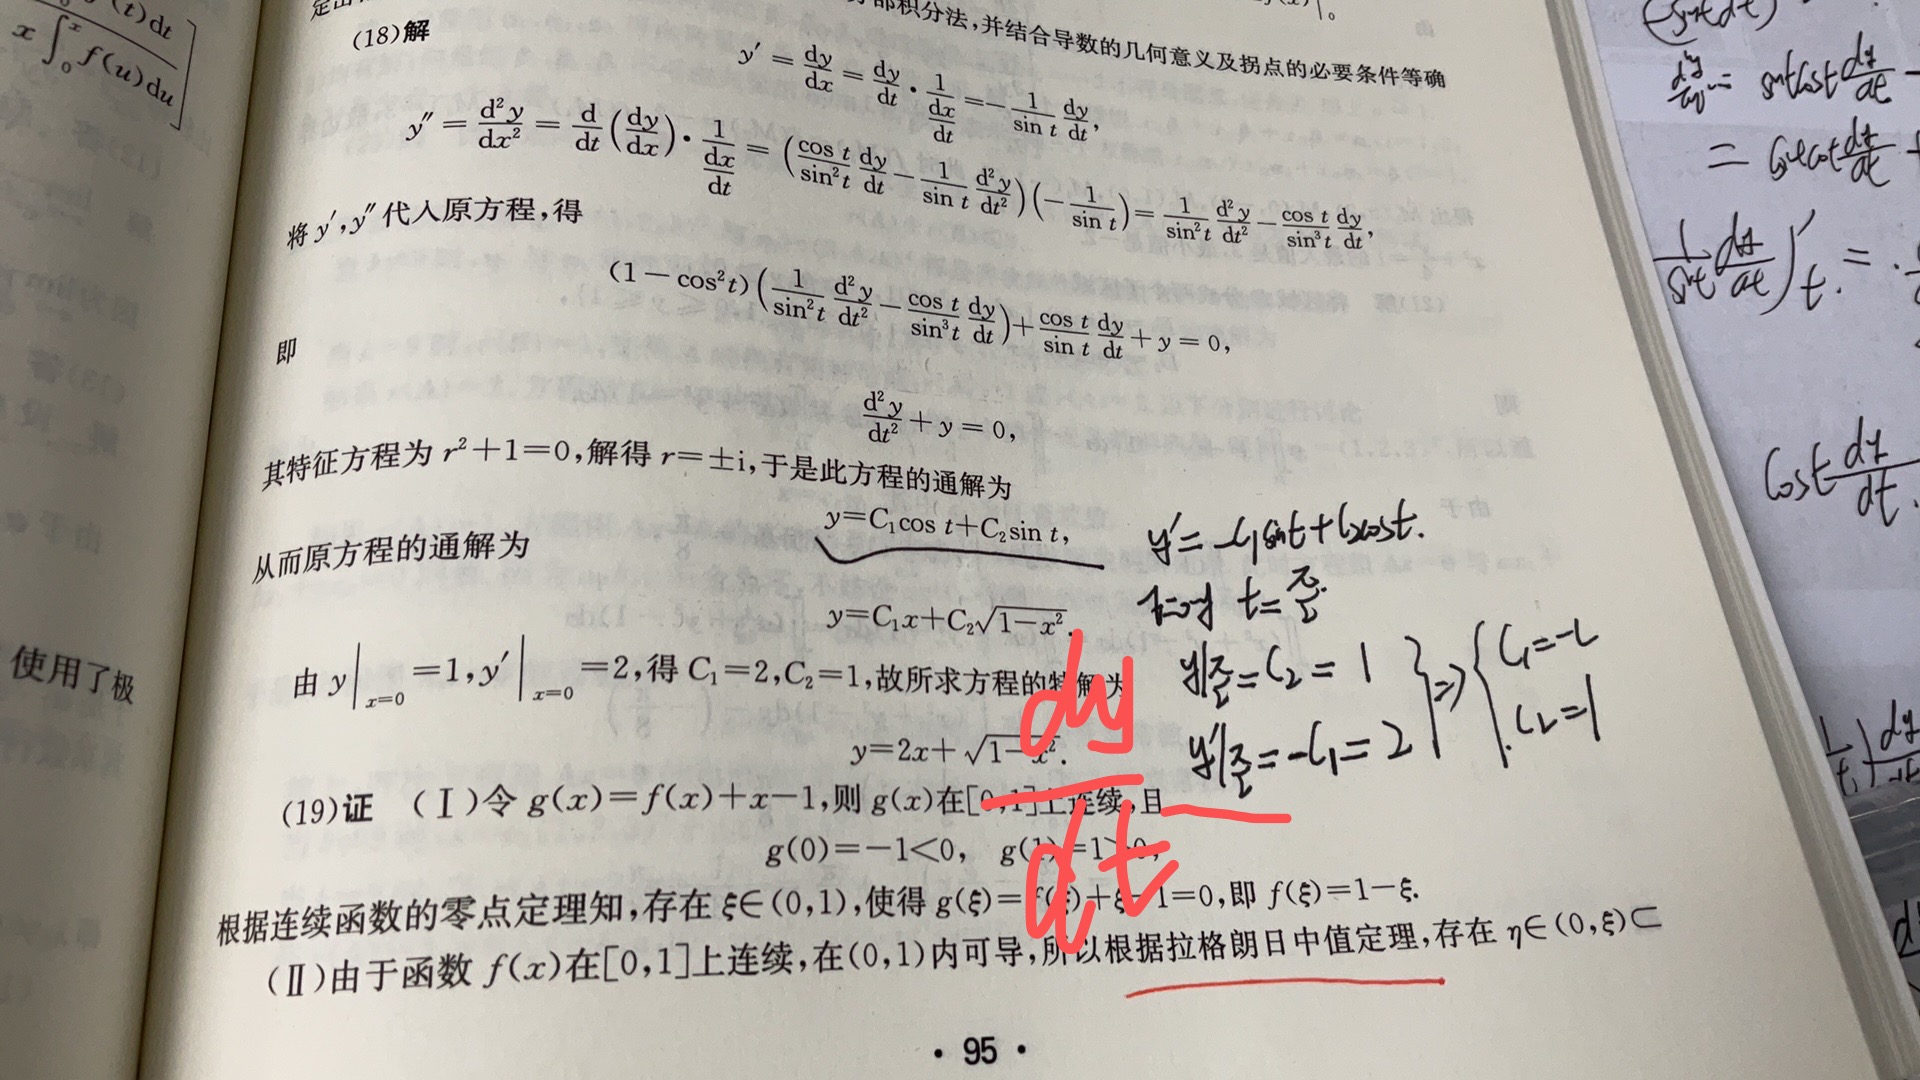 (t)dt
x∫₀ˣ f(u)du
使用了极
部积分法,并结合导数的几何意义及拐点的必要条件等确
(18)解
y′ = dy/dx = dy/dt · 1/(dx/dt) = −1/sin t dy/dt,
y″ = d²y/dx² = d/dt(dy/dx) · 1/(dx/dt) = (cos t/sin²t dy/dt − 1/sin t d²y/dt²)(−1/sin t) = 1/sin²t d²y/dt² − cos t/sin³t dy/dt,
将 y′,y″代入原方程,得
(1−cos²t)(1/sin²t d²y/dt² − cos t/sin³t dy/dt) + cos t/sin t dy/dt + y = 0,
即
d²y/dt² + y = 0,
其特征方程为 r²+1=0,解得 r=±i,于是此方程的通解为
y=C₁cos t+C₂sin t,
从而原方程的通解为
y=C₁x+C₂√(1−x²).
由 y|ₓ₌₀=1,y′|ₓ₌₀=2,得 C₁=2,C₂=1,故所求方程的特解为
y=2x+√(1−x²).
(19)证 (Ⅰ)令 g(x)=f(x)+x−1,则 g(x)在[0,1]上连续,且
g(0)=−1<0, g(1)=1>0,
根据连续函数的零点定理知,存在 ξ∈(0,1),使得 g(ξ)=f(ξ)+ξ−1=0,即 f(ξ)=1−ξ.
(Ⅱ)由于函数 f(x)在[0,1]上连续,在(0,1)内可导,所以根据拉格朗日中值定理,存在 η∈(0,ξ)⊂
· 95 ·
y′=−C₁sint+C₂cost.
t=π/2
y|π/2=C₂=1
y′|π/2=−C₁=2
}⇒{
C₁=−2
C₂=1
dy/dt
= sintcost dy/dt
1/sint dy/dt)′t =
Cost dy/dt